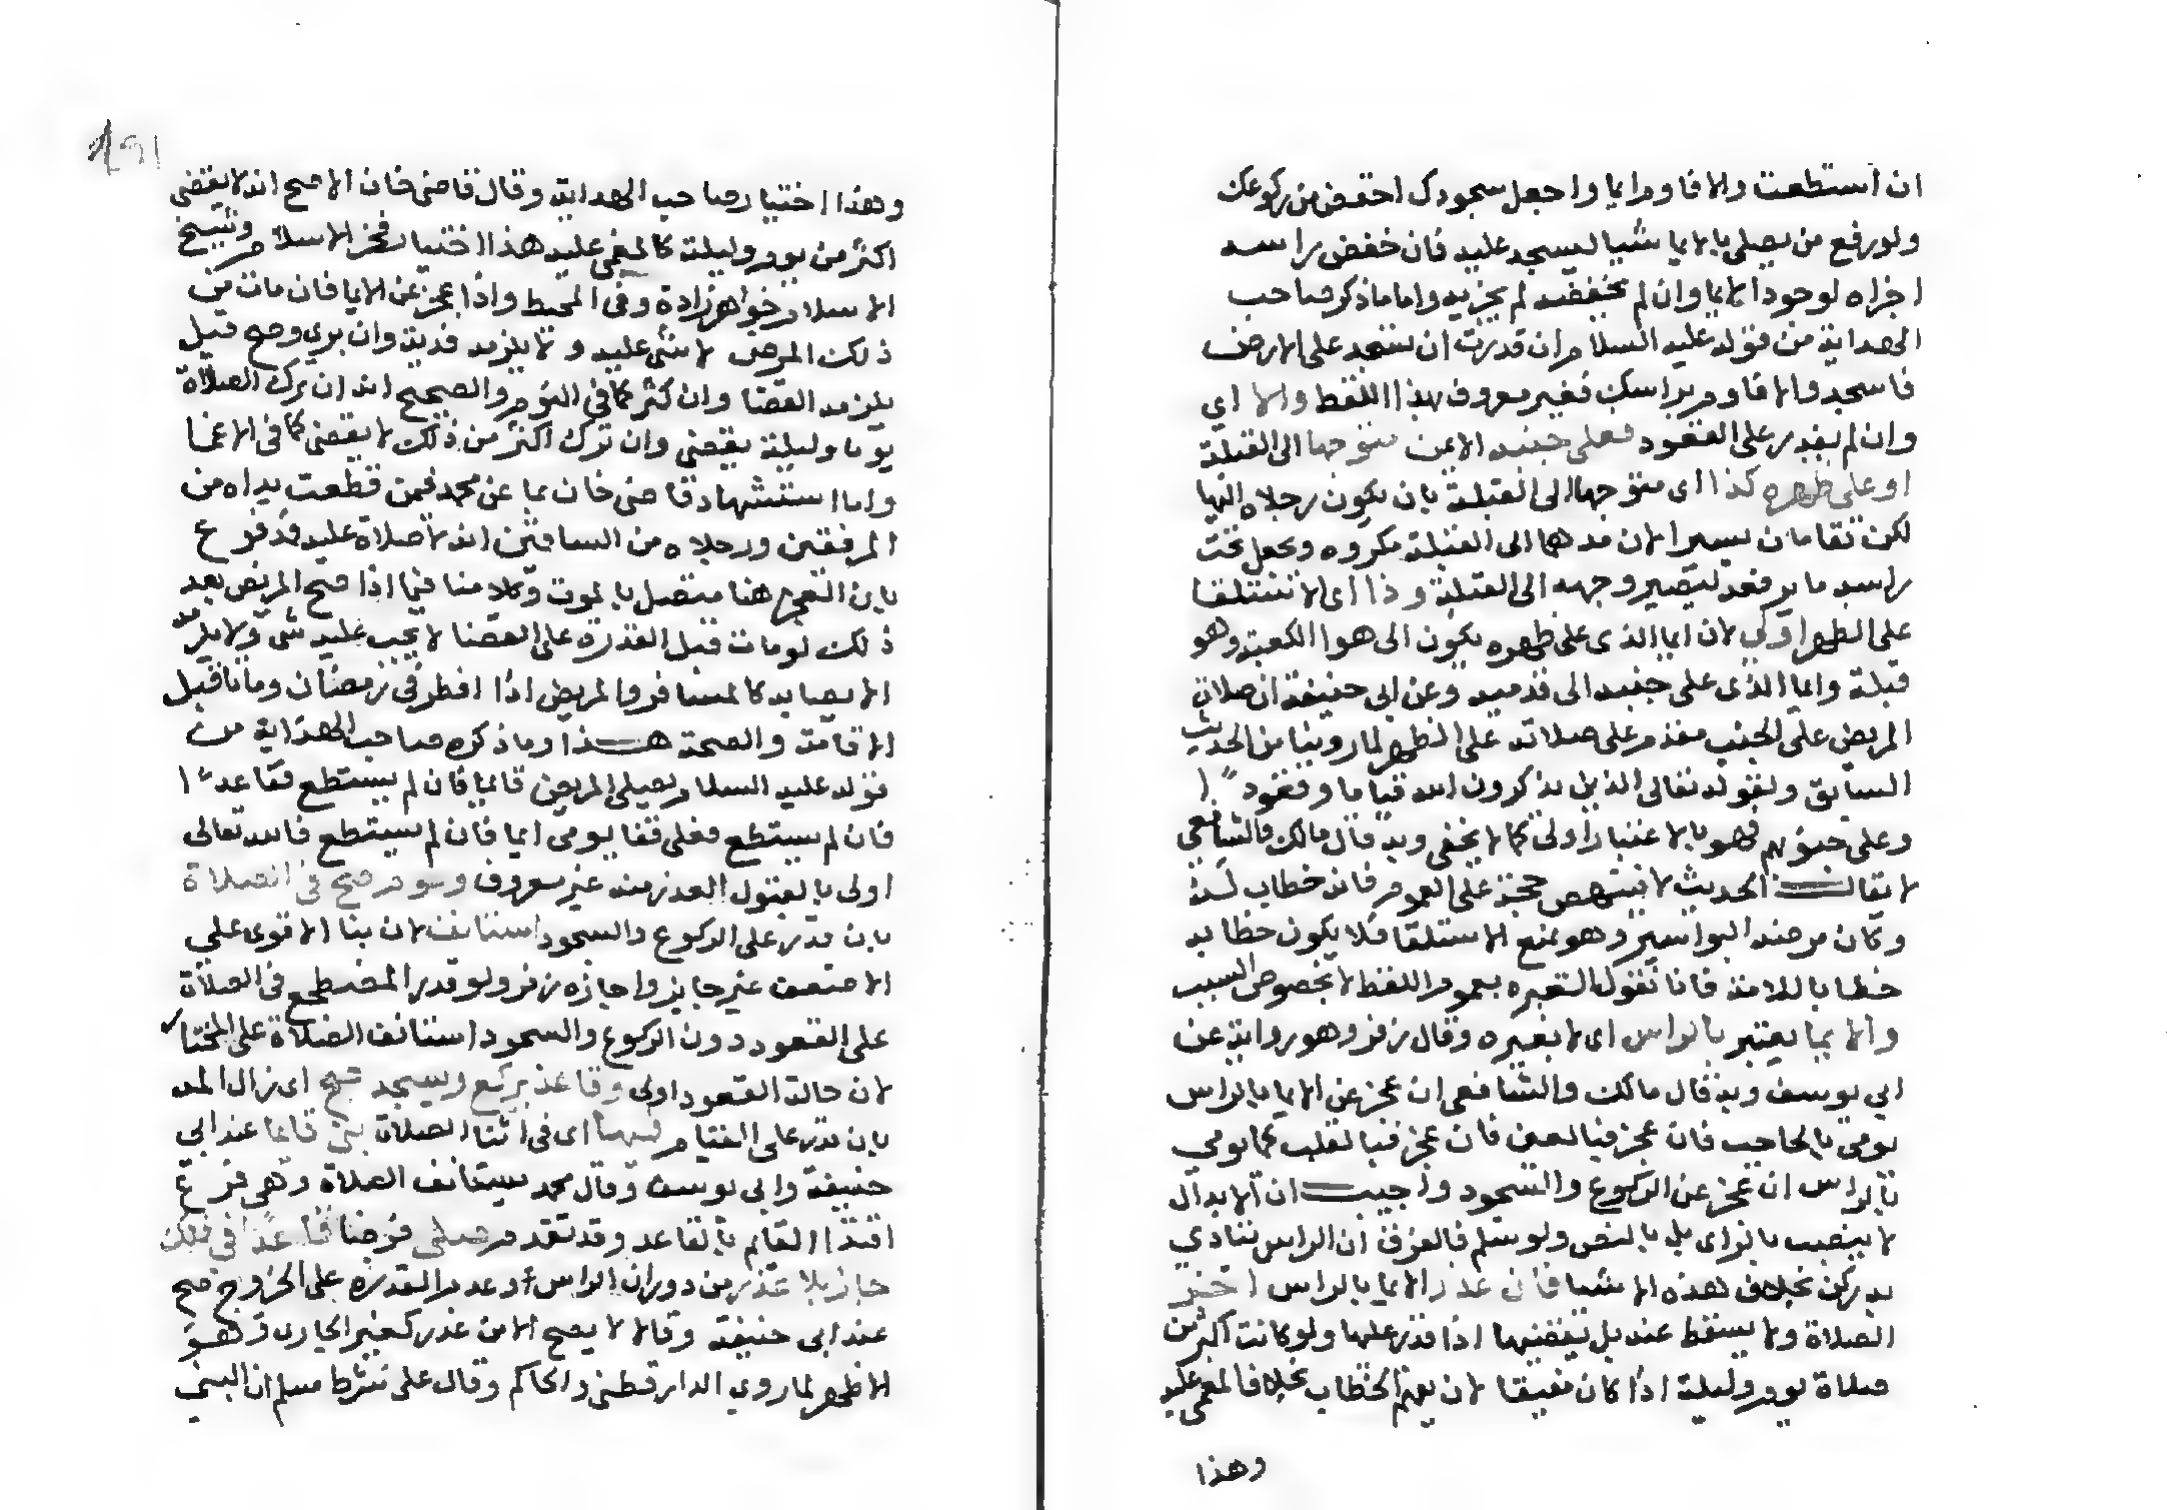 ان استطعت والا فاوم ايما واجعل سجودك اخفض من ركوعك
ولو رفع من يصلي بالايما شيا ليسجد عليه فان خفض راسه
اجزاه لوجود الايما وان لم يخفضه لم يجزيه واما ما ذكر صاحب
الهداية من قوله عليه السلام ان قدرت ان تسجد على الارض
فاسجد والا فاوم براسك فغير معروف بهذا اللفظ والا اي
وان لم يقدر على القعود فعلى جنبه الايمن متوجها الى القبلة
او على ظهره كذا اي متوجها الى القبلة بان يكون رجلاه اليها
لكن تقامان يسيرا لان مدهما الى القبلة مكروه ويجعل تحت
راسه ما يرفعه ليصير وجهه الى القبلة وذا اي الاستلقا
على الظهر اولي لان ايما الذي على ظهره يكون الى هوا الكعبة وهو
قبلة وايما الذي على جنبه الى قدميه وعن ابي حنيفة ان صلاة
المريض على الجنب مقدم على صلاته على الظهر لما روينا من الحديث
السابق ولقوله تعالى الذين يذكرون الله قياما وقعودا
وعلى جنوبهم فهو بالاعتبار اولى كما لا يخفى وبه قال مالك والشافعي
لا يقال الحديث لا ينتهض حجة على العموم فانه خطاب له
وكان مرضه البواسير وهو يمنع الاستلقا فلا يكون خطابه
خطابا للامة فانا نقول العبرة بعموم اللفظ لا بخصوص السبب
والايما يعتبر بالراس اي لا بغيره وقال زفر وهو رواية عن
ابي يوسف وبه قال مالك والشافعي ان عجز عن الايما بالراس
يومي بالحاجب فان عجز فبالعين فان عجز فبالقلب كما يومي
بالراس ان عجز عن الركوع والسجود واجيب ان الابدال
لا ينصب بالراي بل بالنص ولو سلم فالفرق ان الراس تتادي
به ركن بخلاف هذه الاشيا فان عذر الايما بالراس اخر
الصلاة ولا يسقط عنه بل يقضيها اذا قدر عليها ولو كانت اكثر من
صلاة يوم وليلة اذا كان مفيقا لان يفهم الخطاب بخلاف المغمى عليه
وهذا
وهذا اختيار صاحب الهداية وقال قاضي خان الاصح انه لا يقضي
اكثر من يوم وليلة كالمغمى عليه هذا اختيار فخر الاسلام وشيخ
الاسلام خواهر زادة وفي المحيط واذا عجز عن الايما فان مات من
ذلك المرض لا شي عليه ولا يلزمه فدية وان بري وصح قيل
يلزمه القضا وان كثر كما في النوم والصحيح انه ان ترك الصلاة
يوما وليلة يقضي وان ترك اكثر من ذلك لا يقضي كما في الاغما
واما استشهاد قاضي خان بما عن محمد فيمن قطعت يداه من
المرفقين ورجلاه من الساقين انه لا صلاة عليه فدفوع
بان العجز هنا متصل بالموت وكلامنا فيما اذا صح المريض بعد
ذلك لو مات قبل القدرة على القضا لا يجب عليه شي ولا يلزمه
الايصا به كالمسافر والمريض اذا افطر في رمضان وماتا قبل
الاقامة والصحة هذا وما ذكره صاحب الهداية من
قوله عليه السلام يصلي المريض قايما فان لم يستطع فقاعدا
فان لم يستطع فعلى قفا يومي ايما فان لم يستطع فالله تعالى
اولى بالقبول العذر منه غير معروف وموم صح في الصلاة
بان قدر على الركوع والسجود استانف لان بنا الاقوى على
الاضعف غير جايز واجازه زفر ولو قدر المضطجع في الصلاة
على القعود دون الركوع والسجود استانف الصلاة على المختار
لان حالة القعود اولى وقاعد يركع ويسجد صح اي زال المه
بان قدر على القيام فيها اي في اثنا الصلاة بنى قايما عند ابي
حنيفة وابي يوسف وقال محمد يستانف الصلاة وهي فرع
اقتدا القايم بالقاعد وقد تقدم صلى فرضا قاعدا في فلك
جار بلا عذر من دوران الراس او عدم القدرة على الخروج صح
عند ابي حنيفة وقالا لا يصح الا من عذر كغير الجاري وهو
الاظهر لما روي الدارقطني والحاكم وقال على شرط مسلم ان النبي